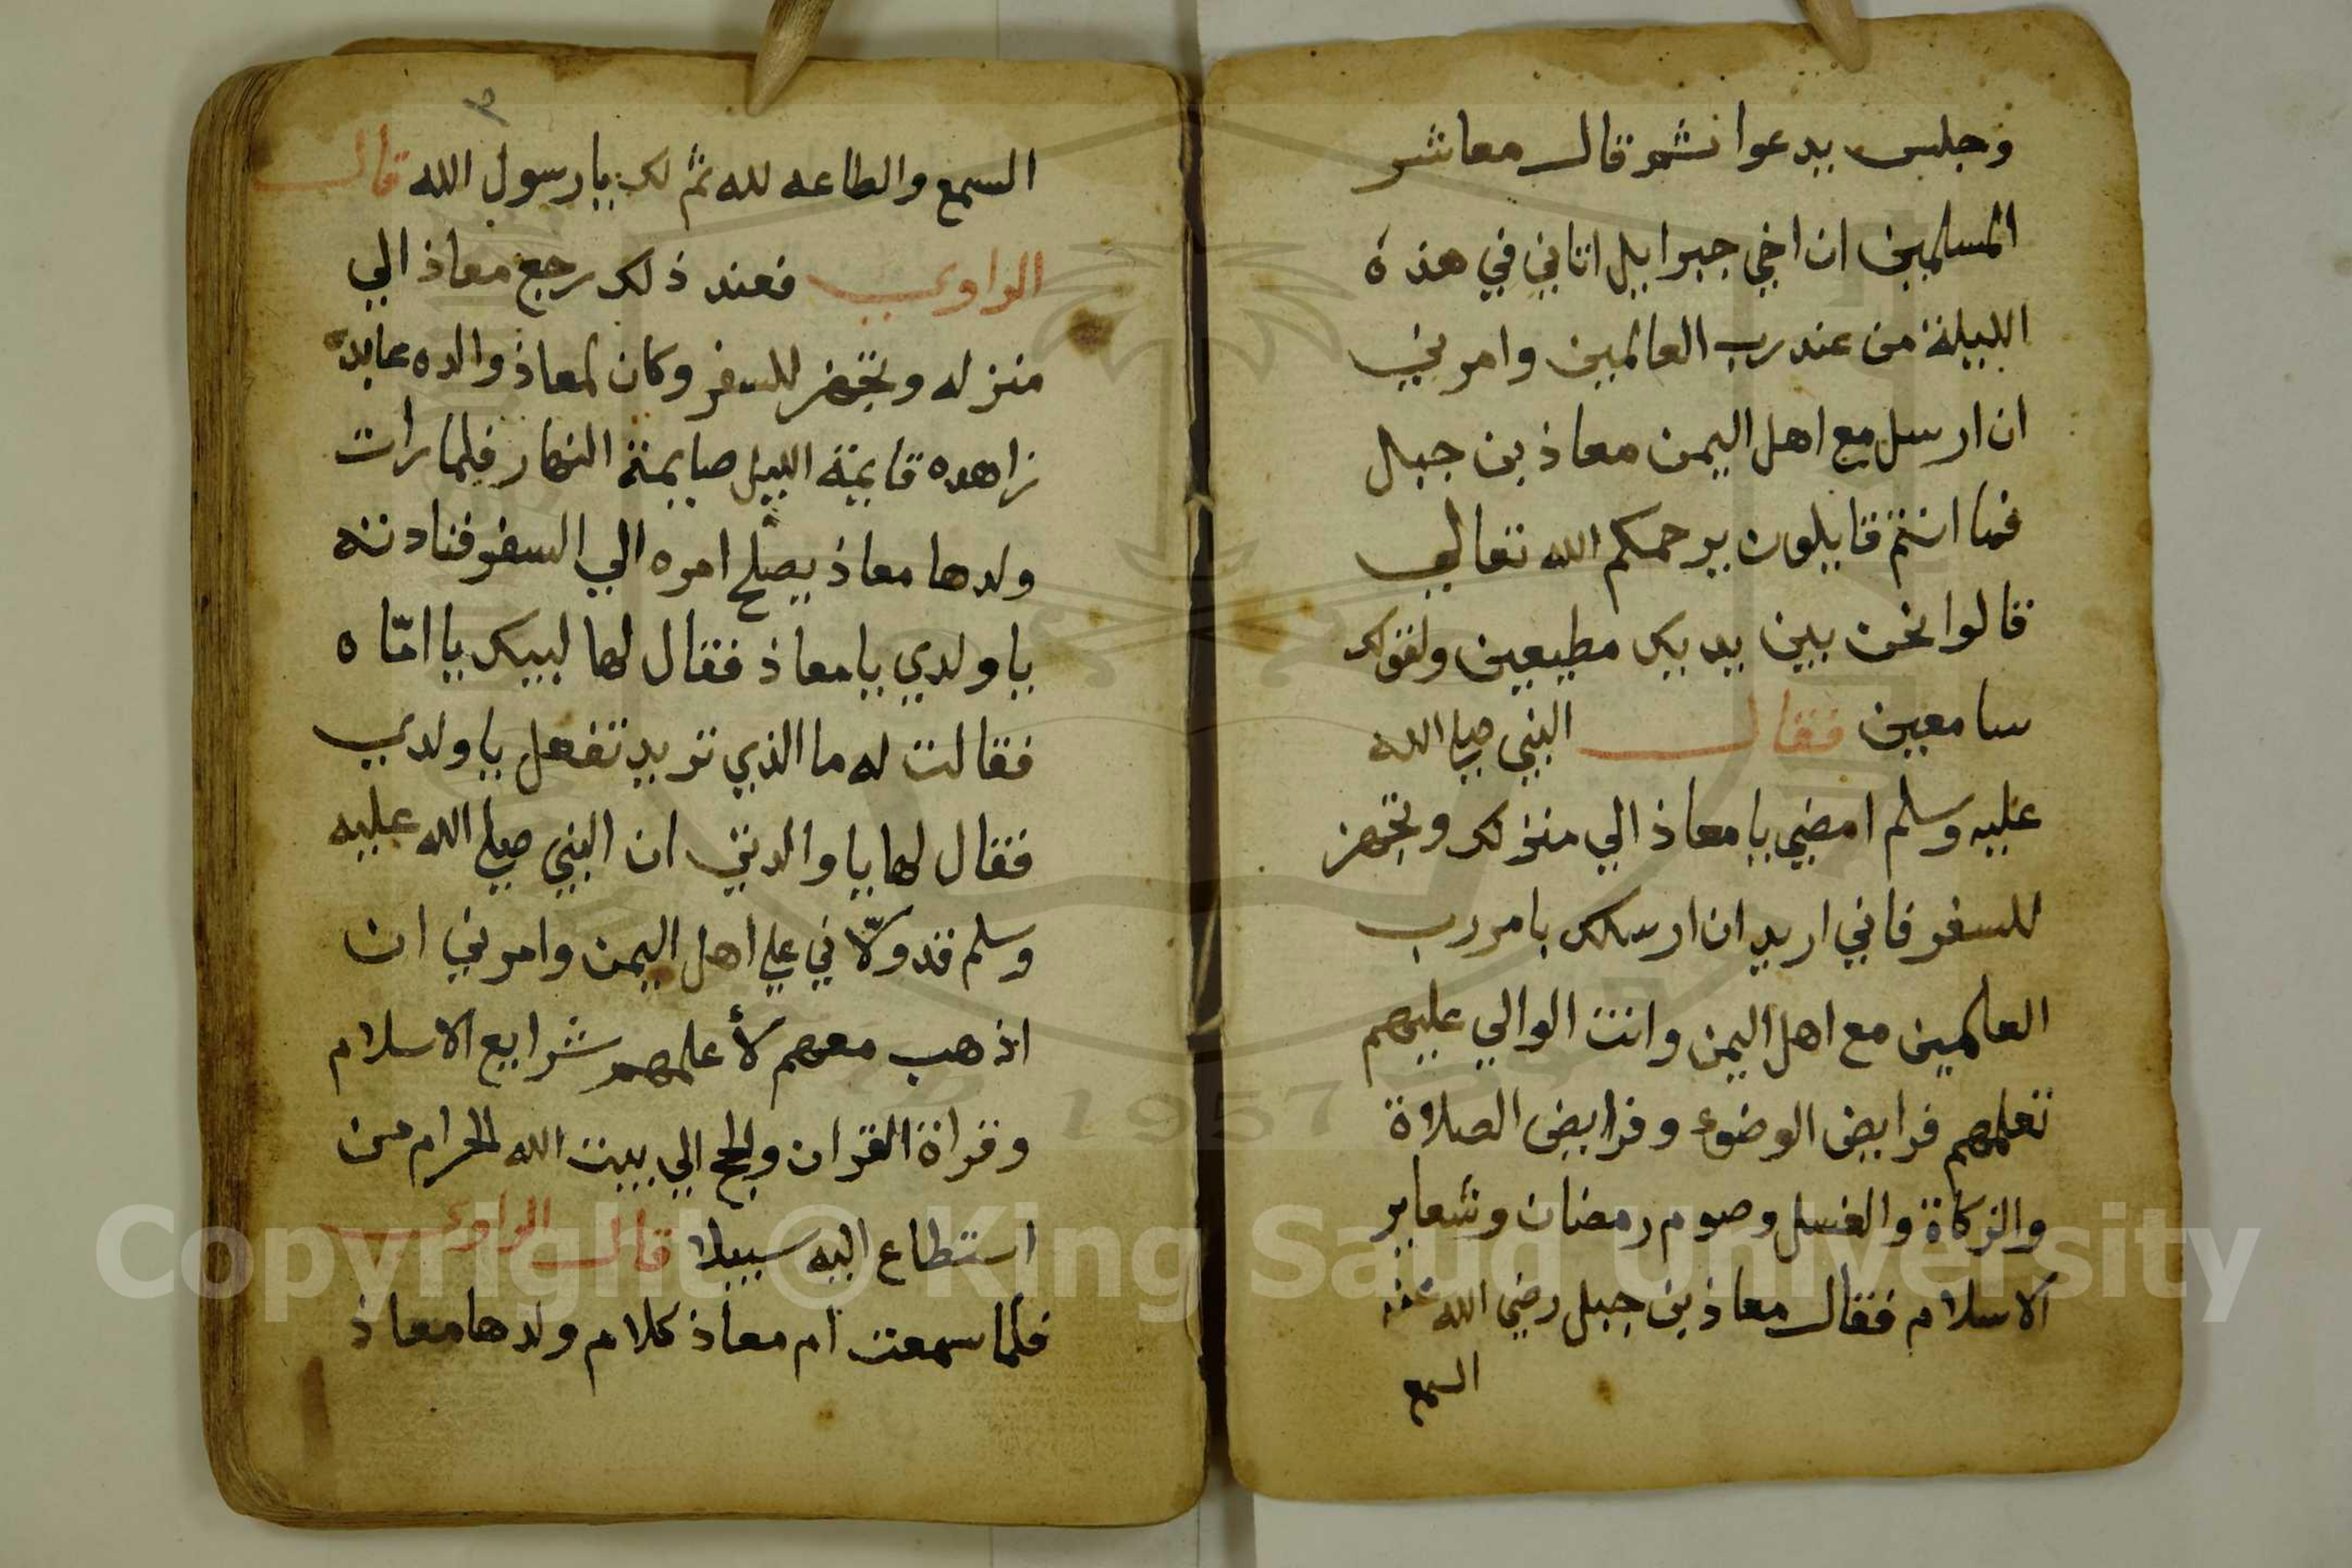 وجلس يدعوا ثم قال معاشر
المسلمين ان اخي جبرايل اتاني في هذه
الليلة من عند رب العالمين وامرني
ان ارسل مع اهل اليمن معاذ بن جبل
فما انتم قايلون يرحمكم الله تعالي
قالوا نحن بين يديك مطيعين ولقولك
سامعين فقال النبي صلي الله
عليه وسلم امضي يا معاذ الي منزلك وتجهز
للسفر فاني اريد ان ارسلك بامر رب
العالمين مع اهل اليمن وانت الوالي عليهم
تعلمهم فرايض الوضوء وفرايض الصلاة
والزكاة والغسل وصوم رمضان وشعاير
الاسلام فقال معاذ بن جبل رضي الله عنه
السمع
٣
السمع والطاعه لله ثم لك يا رسول الله قال
الراوي فعند ذلك رجع معاذ الي
منزله وتجهز للسفر وكان لمعاذ والده عابدة
زاهده قايمة الليل صايمة النهار فلما رات
ولدها معاذ يصلح امره الي السفر فنادته
يا ولدي يا معاذ فقال لها لبيك يا امّاه
فقالت له ما الذي تريد تفعل يا ولدي
فقال لها يا والدتي ان النبي صلي الله عليه
وسلم قد ولّاني علي اهل اليمن وامرني ان
اذهب معهم لأعلمهم شرايع الاسلام
وقراة القران والحج الي بيت الله الحرام من
استطاع اليه سبيلا قال الراوي
فلما سمعت ام معاذ كلام ولدها معاذ
Copyright © King Saud University
1957